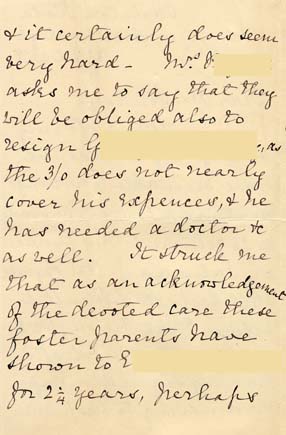 & it certainly does seem
very hard - Mrs. P
asks me to say that they
will be obliged also to
resign G , as
the 3/0 does not nearly
cover his expences, & he
has needed a doctor &c
as well. It struck me
that as an acknowledgement
of the devoted care these
foster parents have
shown to E
for 2 1/4 years, perhaps